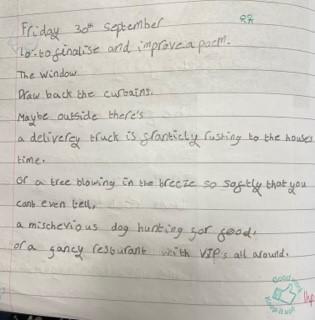 Friday 30th September
Lo:-to finalise and improve a poem.
The Window
Draw back the curtains.
Maybe outside there's
a deliverey truck is franticly rushing to the houses
time.
Or a tree blowing in the breeze so softly that you
cant even tell,
a mischevious dog hunting for food.
or a fancy resturant with VIP's all around.
Good